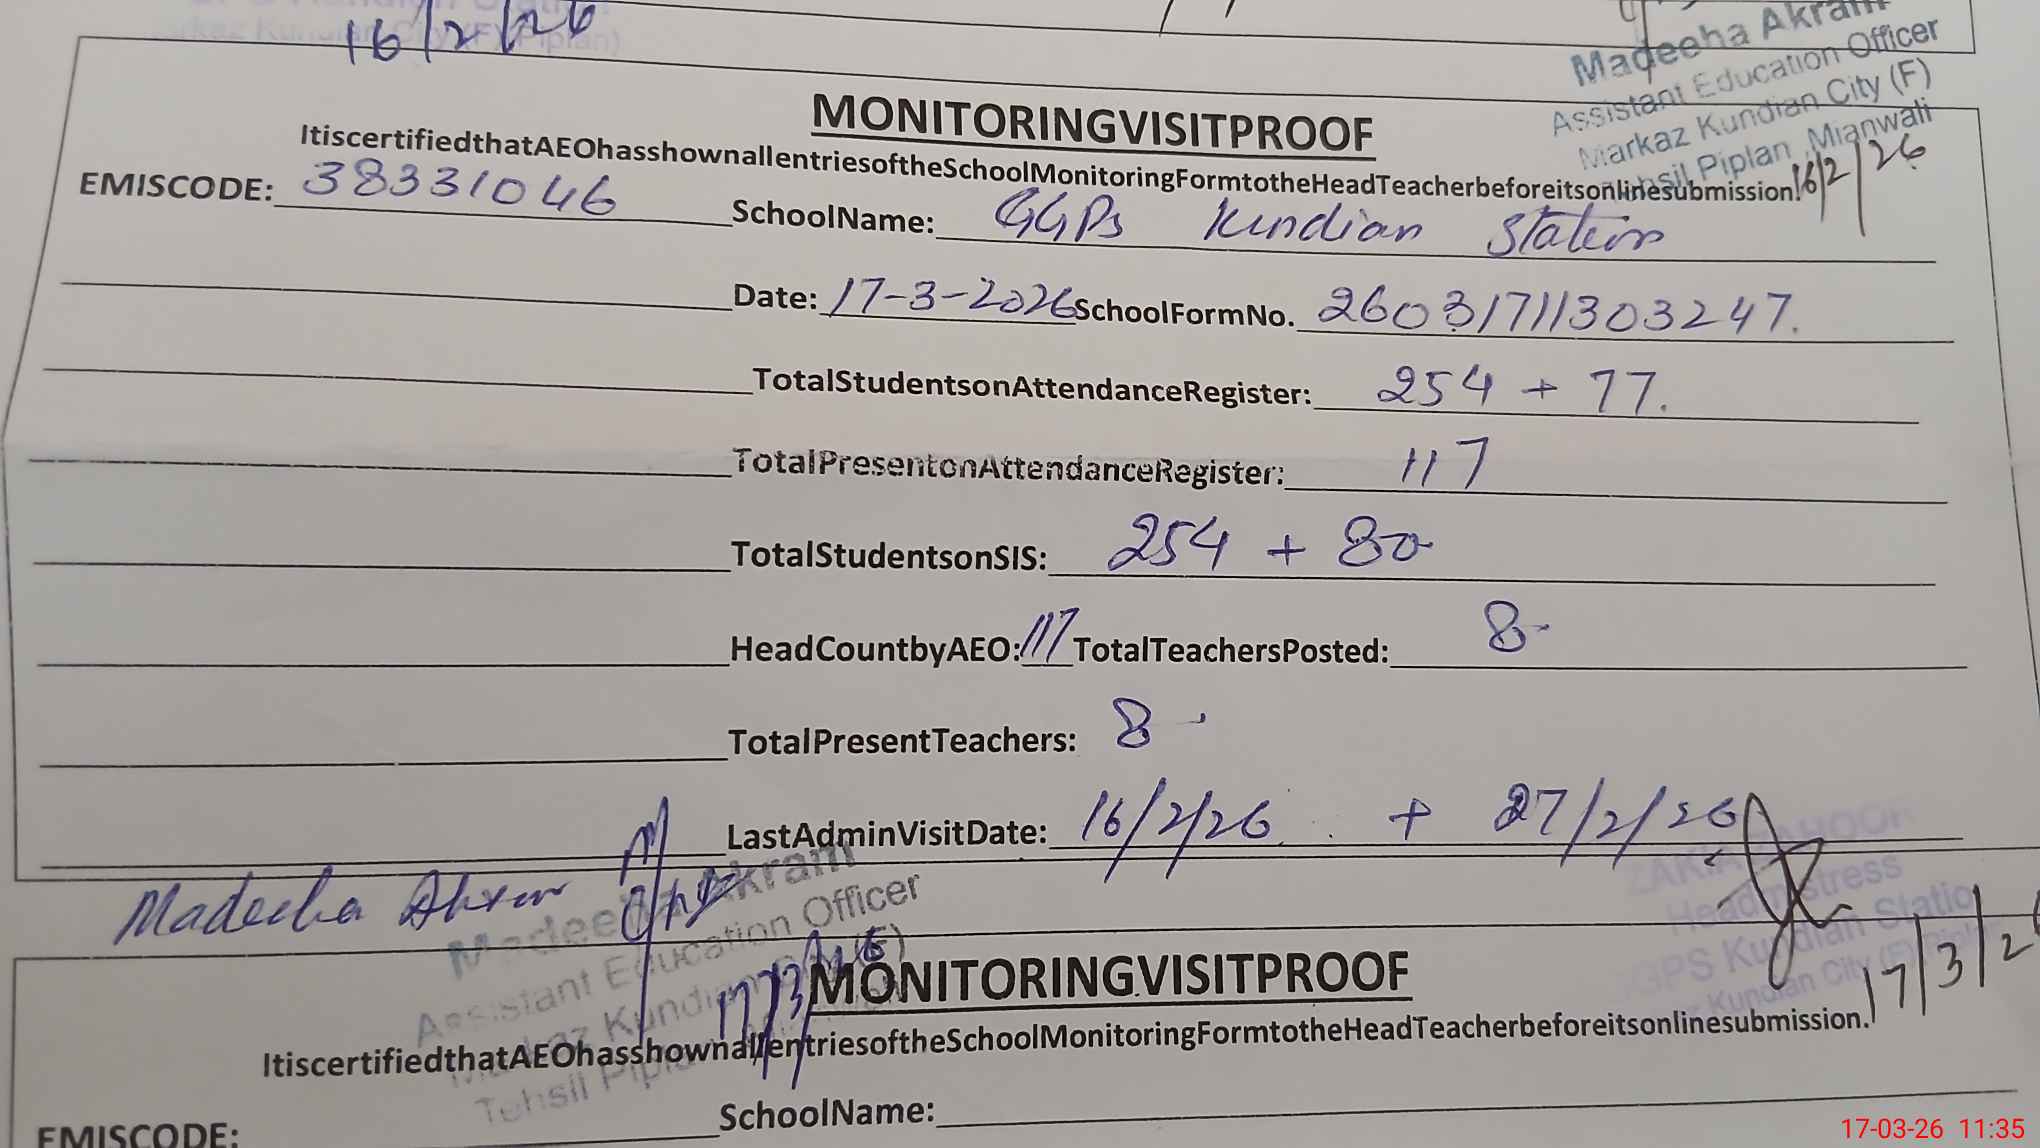 16/2/26
Madeeha Akram
Assistant Education Officer
Markaz Kundian City (F)
Tehsil Piplan, Mianwali
16/2/26
MONITORINGVISITPROOF
ItiscertifiedthatAEOhasshownallentriesoftheSchoolMonitoringFormtotheHeadTeacherbeforeitsonlinesubmission.
EMISCODE: 38331046 SchoolName: GGPS Kundian Station
Date: 17-3-2026 SchoolFormNo. 26031711303247.
TotalStudentsonAttendanceRegister: 254 + 77.
TotalPresentonAttendanceRegister: 117
TotalStudentsonSIS: 254 + 80
HeadCountbyAEO: 117 TotalTeachersPosted: 8
TotalPresentTeachers: 8
LastAdminVisitDate: 16/2/26 + 27/2/26
Madeeha Akram
Madeeha Akram
Assistant Education Officer
Tehsil Piplan
Headmistress
GGPS Kundian Station
Kundian City (F)
17/3/2
MONITORINGVISITPROOF
ItiscertifiedthatAEOhasshownallentriesoftheSchoolMonitoringFormtotheHeadTeacherbeforeitsonlinesubmission.
EMISCODE: SchoolName:
17-03-26 11:35